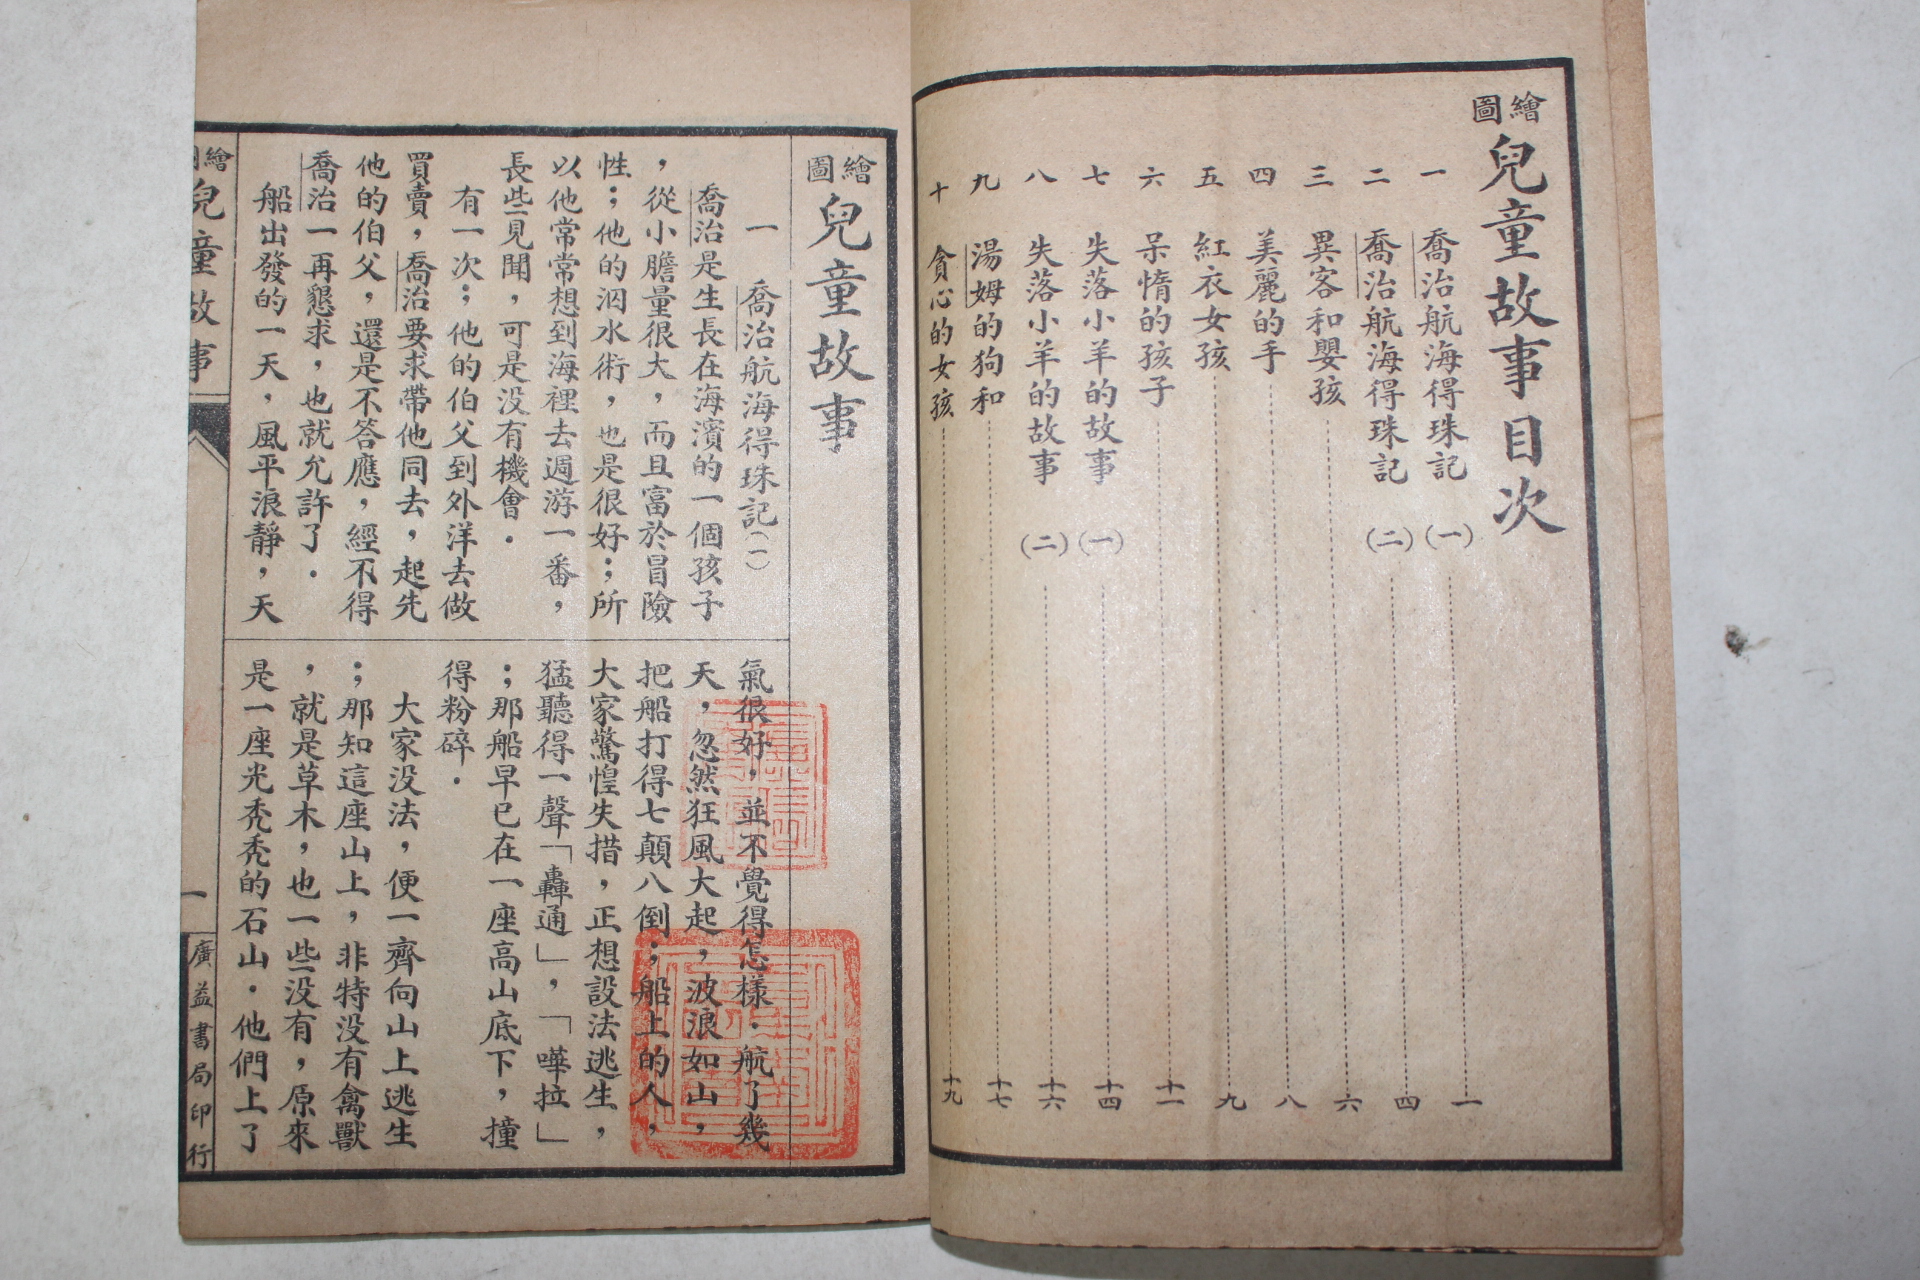 繪圖兒童故事目次
一 喬治航海得珠記 (一) 一
二 喬治航海得珠記 (二) 四
三 異客和嬰孩 六
四 美麗的手 八
五 紅衣女孩 九
六 呆惰的孩子 十一
七 失落小羊的故事 (一) 十四
八 失落小羊的故事 (二) 十六
九 湯姆的狗和 十七
十 貪心的女孩 十九
繪圖兒童故事
一 喬治航海得珠記(一)
喬治是生長在海濱的一個孩子
，從小膽量很大，而且富於冒險
性；他的泅水術，也是很好；所
以他常常想到海裡去週游一番，
長些見聞，可是没有機會．
有一次；他的伯父到外洋去做
買賣，喬治要求帶他同去，起先
他的伯父，還是不答應，經不得
喬治一再懇求，也就允許了．
船出發的一天，風平浪靜，天
氣很好，並不覺得怎樣．航了幾
天，忽然狂風大起，波浪如山，
把船打得七顛八倒；船上的人，
大家驚惶失措，正想設法逃生，
猛聽得一聲「轟通」，「嘩拉」
；那船早已在一座高山底下，撞
得粉碎．
大家没法，便一齊向山上逃生
；那知這座山上，非特没有禽獸
，就是草木，也一些没有，原來
是一座光秃秃的石山．他們上了
繪圖兒童故事
一
廣益書局印行